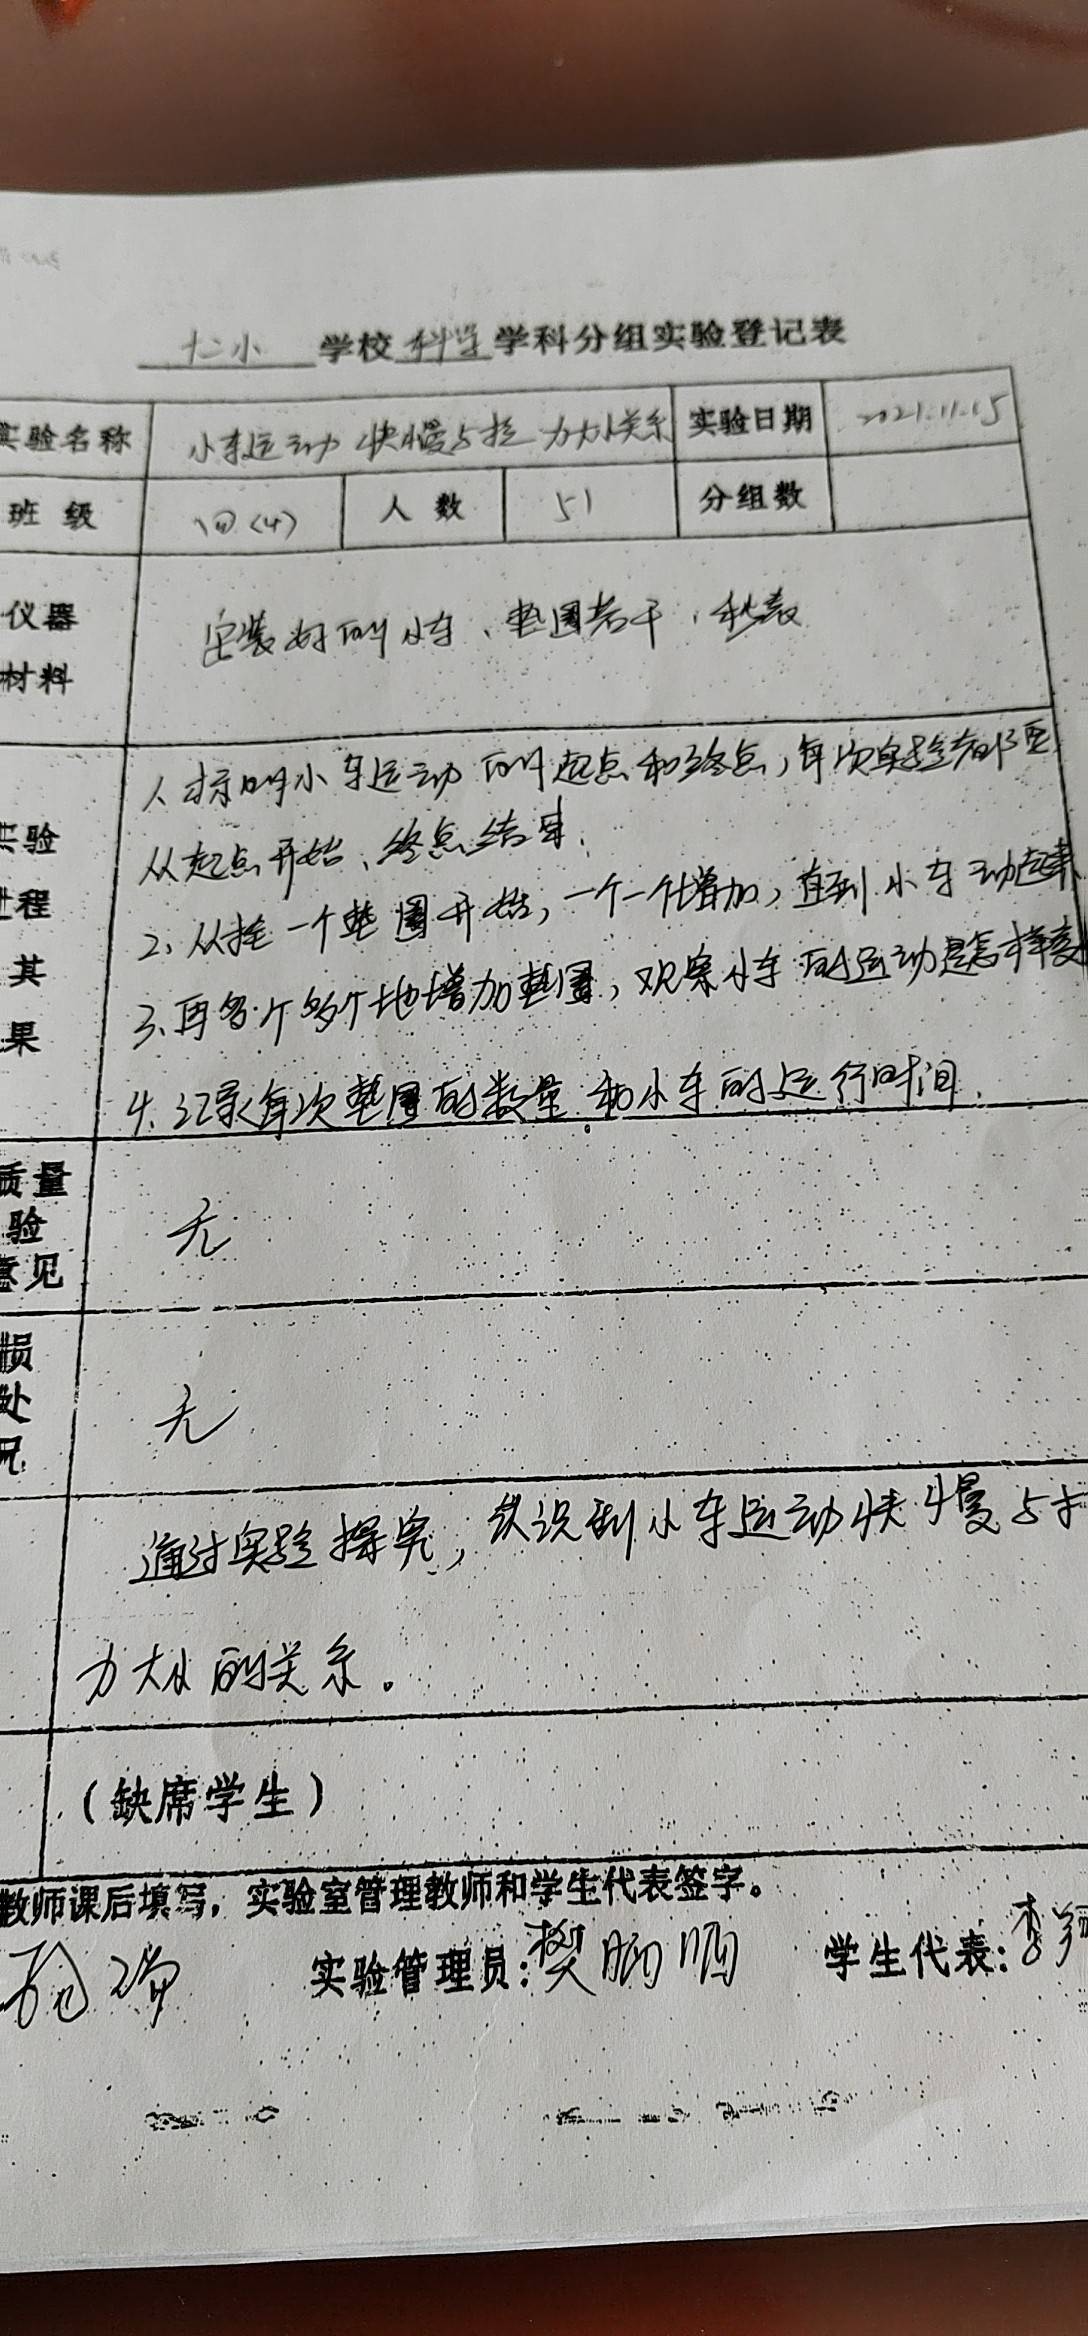 十二小 学校 科学 学科分组实验登记表
实验名称 小车运动快慢与拉力大小关系 实验日期 2021.11.15
班级 四(4) 人数 51 分组数
仪器 安装好的小车、垫圈若干、秒表
材料
1、标明小车运动的起点和终点,每次实验都要
实验 从起点开始、终点结束.
过程 2、从挂一个垫圈开始,一个一个增加,直到小车动起来
其 3、再多个多个地增加垫圈,观察小车的运动是怎样变
果
4、记录每次垫圈的数量和小车的运行时间.
质量
验 无
意见
损
处 无
况
通过实验探究,认识到小车运动快慢与
力大小的关系。
(缺席学生)
教师课后填写,实验室管理教师和学生代表签字。
实验管理员: 樊 学生代表: 李